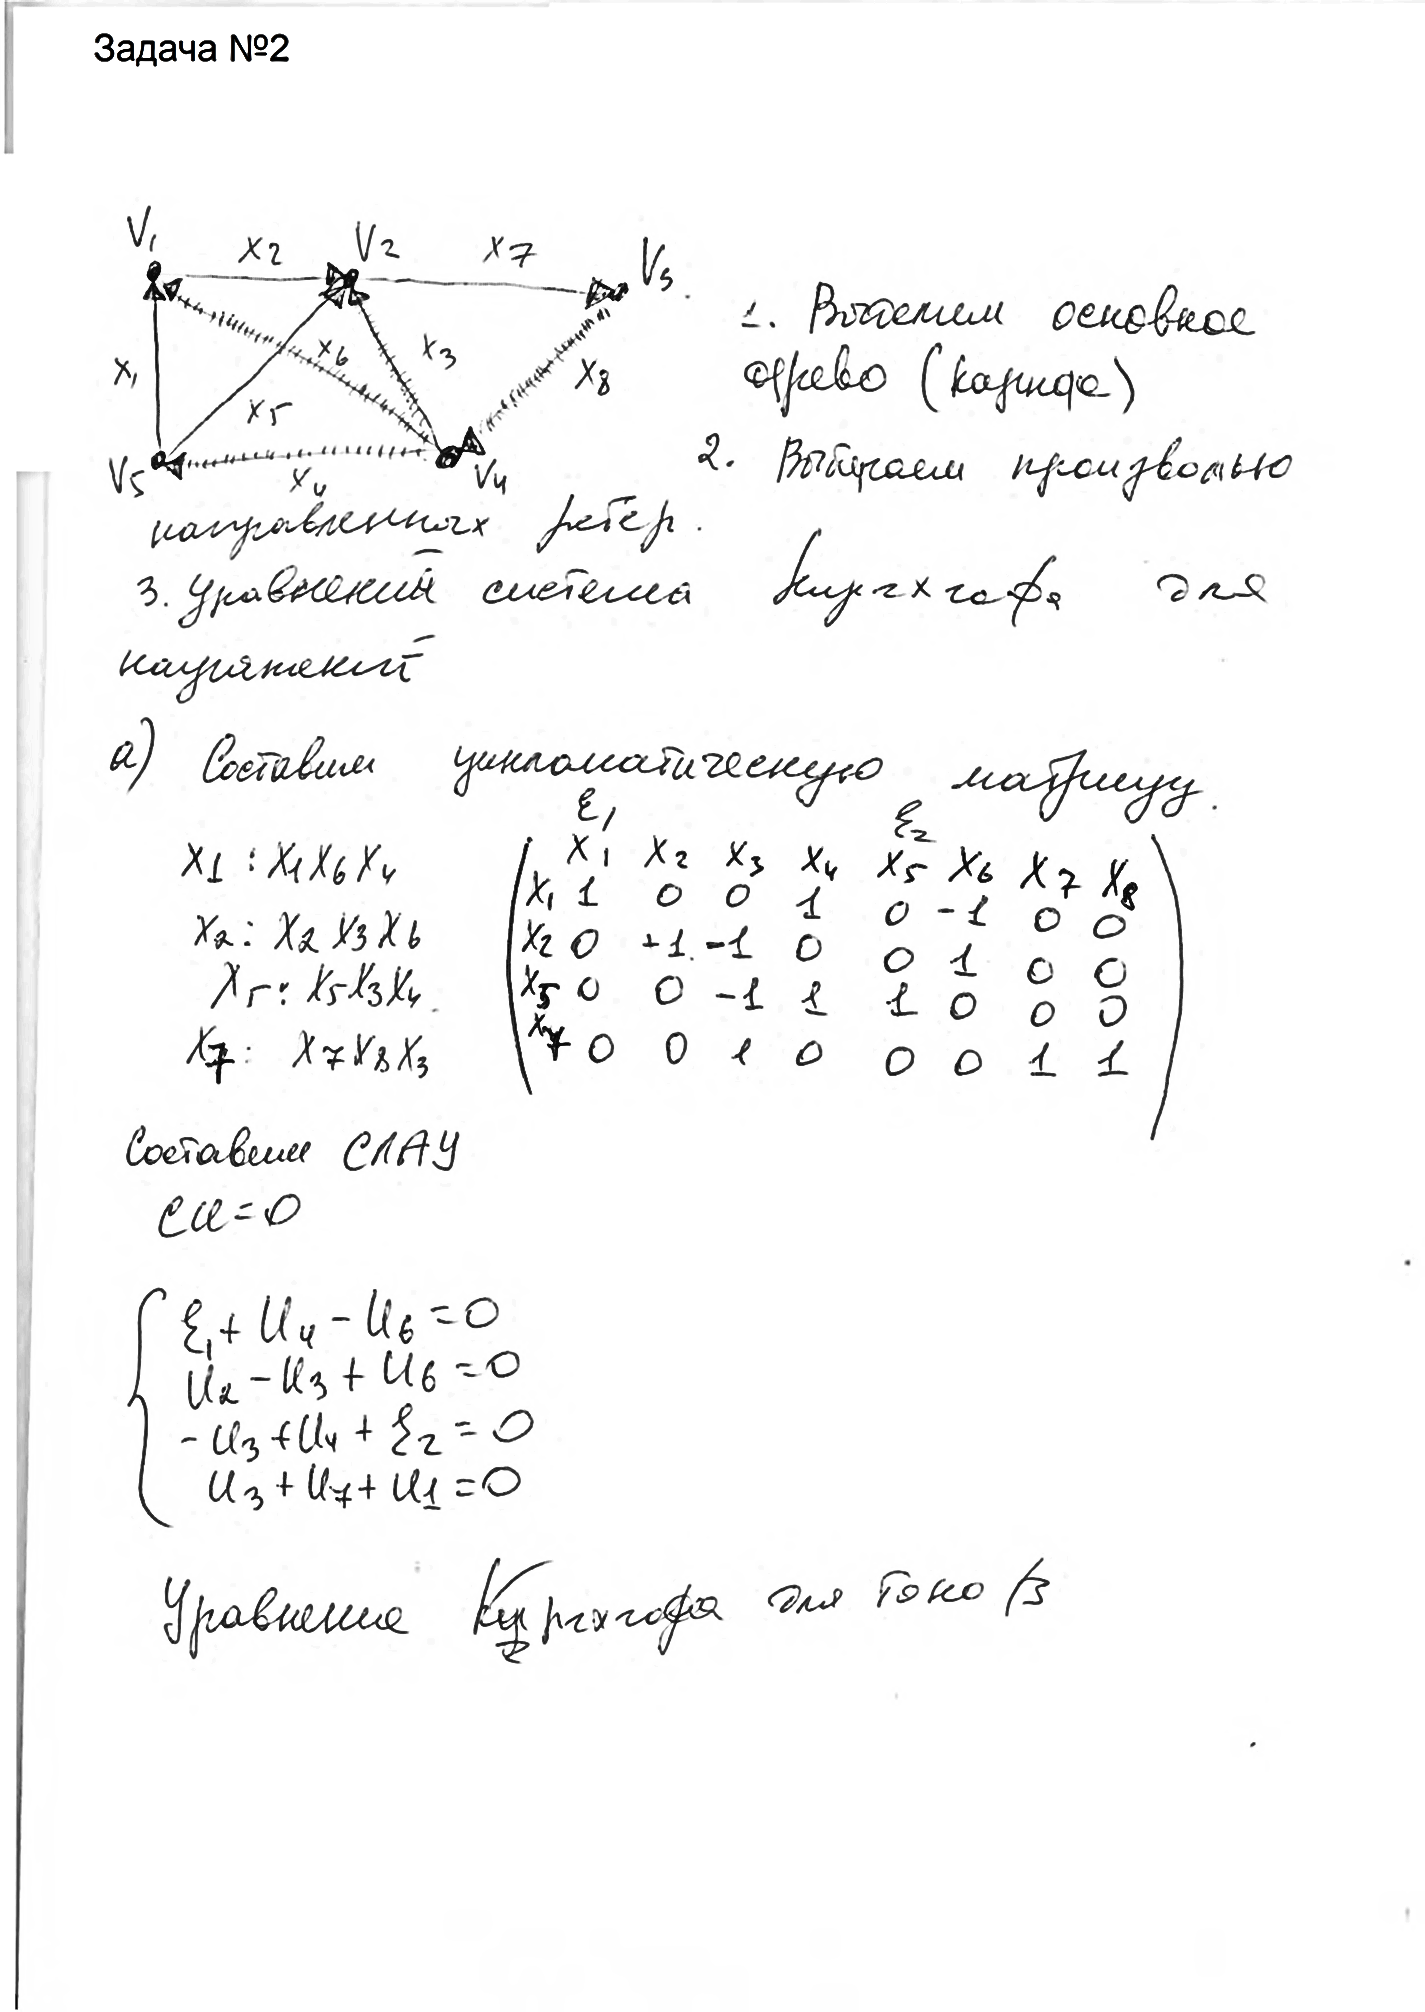 Задача №2
V1 x2 V2 x7 V3
x1 x6 x3 x8
x5
V5 x4 V4
1. Выделим основное
древо (каркас)
2. Выбираем произвольно
направленных рёбер.
3. Уравнений система Кирхгофа для
напряжений
а) Составим цикломатическую матрицу.
ξ1 ξ2
x1 x2 x3 x4 x5 x6 x7 x8
x1 : x1 x6 x4
x1 1 0 0 1 0 -1 0 0
x2 : x2 x3 x6
x2 0 +1 -1 0 0 1 0 0
x5 : x5 x3 x4
x5 0 0 -1 1 1 0 0 0
x7 : x7 x8 x3
x7 0 0 1 0 0 0 1 1
Составим СЛАУ
CU=0
ξ1 + U4 - U6 = 0
U2 - U3 + U6 = 0
- U3 + U4 + ξ2 = 0
U3 + U7 + U1 = 0
Уравнение Кирхгофа для токов